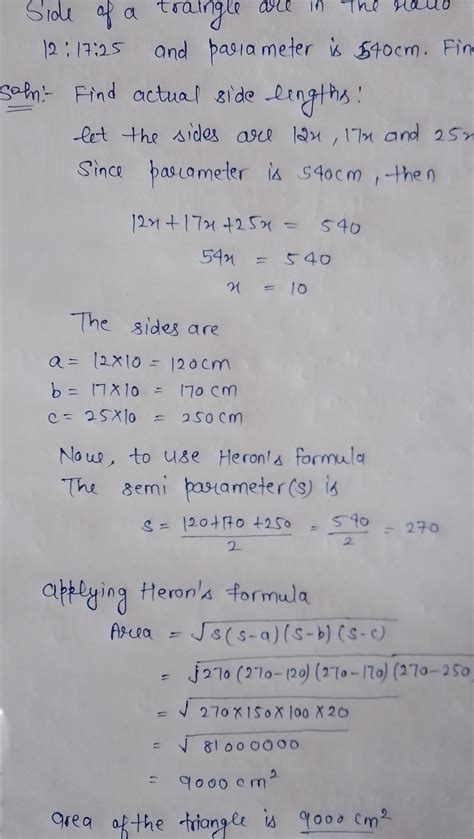 Side of a traingle are in the ratio
12:17:25 and parameter is 540cm. Fin
Soln:- Find actual side lengths:
let the sides are 12x, 17x and 25x
Since parameter is 540cm, then
12x+17x+25x = 540
54x = 540
x = 10
The sides are
a = 12×10 = 120cm
b = 17×10 = 170 cm
c = 25×10 = 250cm
Now, to use Heron's formula
The semi parameter(s) is
s = (120+170+250)/2 = 540/2 = 270
applying Heron's formula
Area = √s(s-a)(s-b)(s-c)
= √270(270-120)(270-170)(270-250
= √270×150×100×20
= √81000000
= 9000 cm²
area of the triangle is 9000 cm²